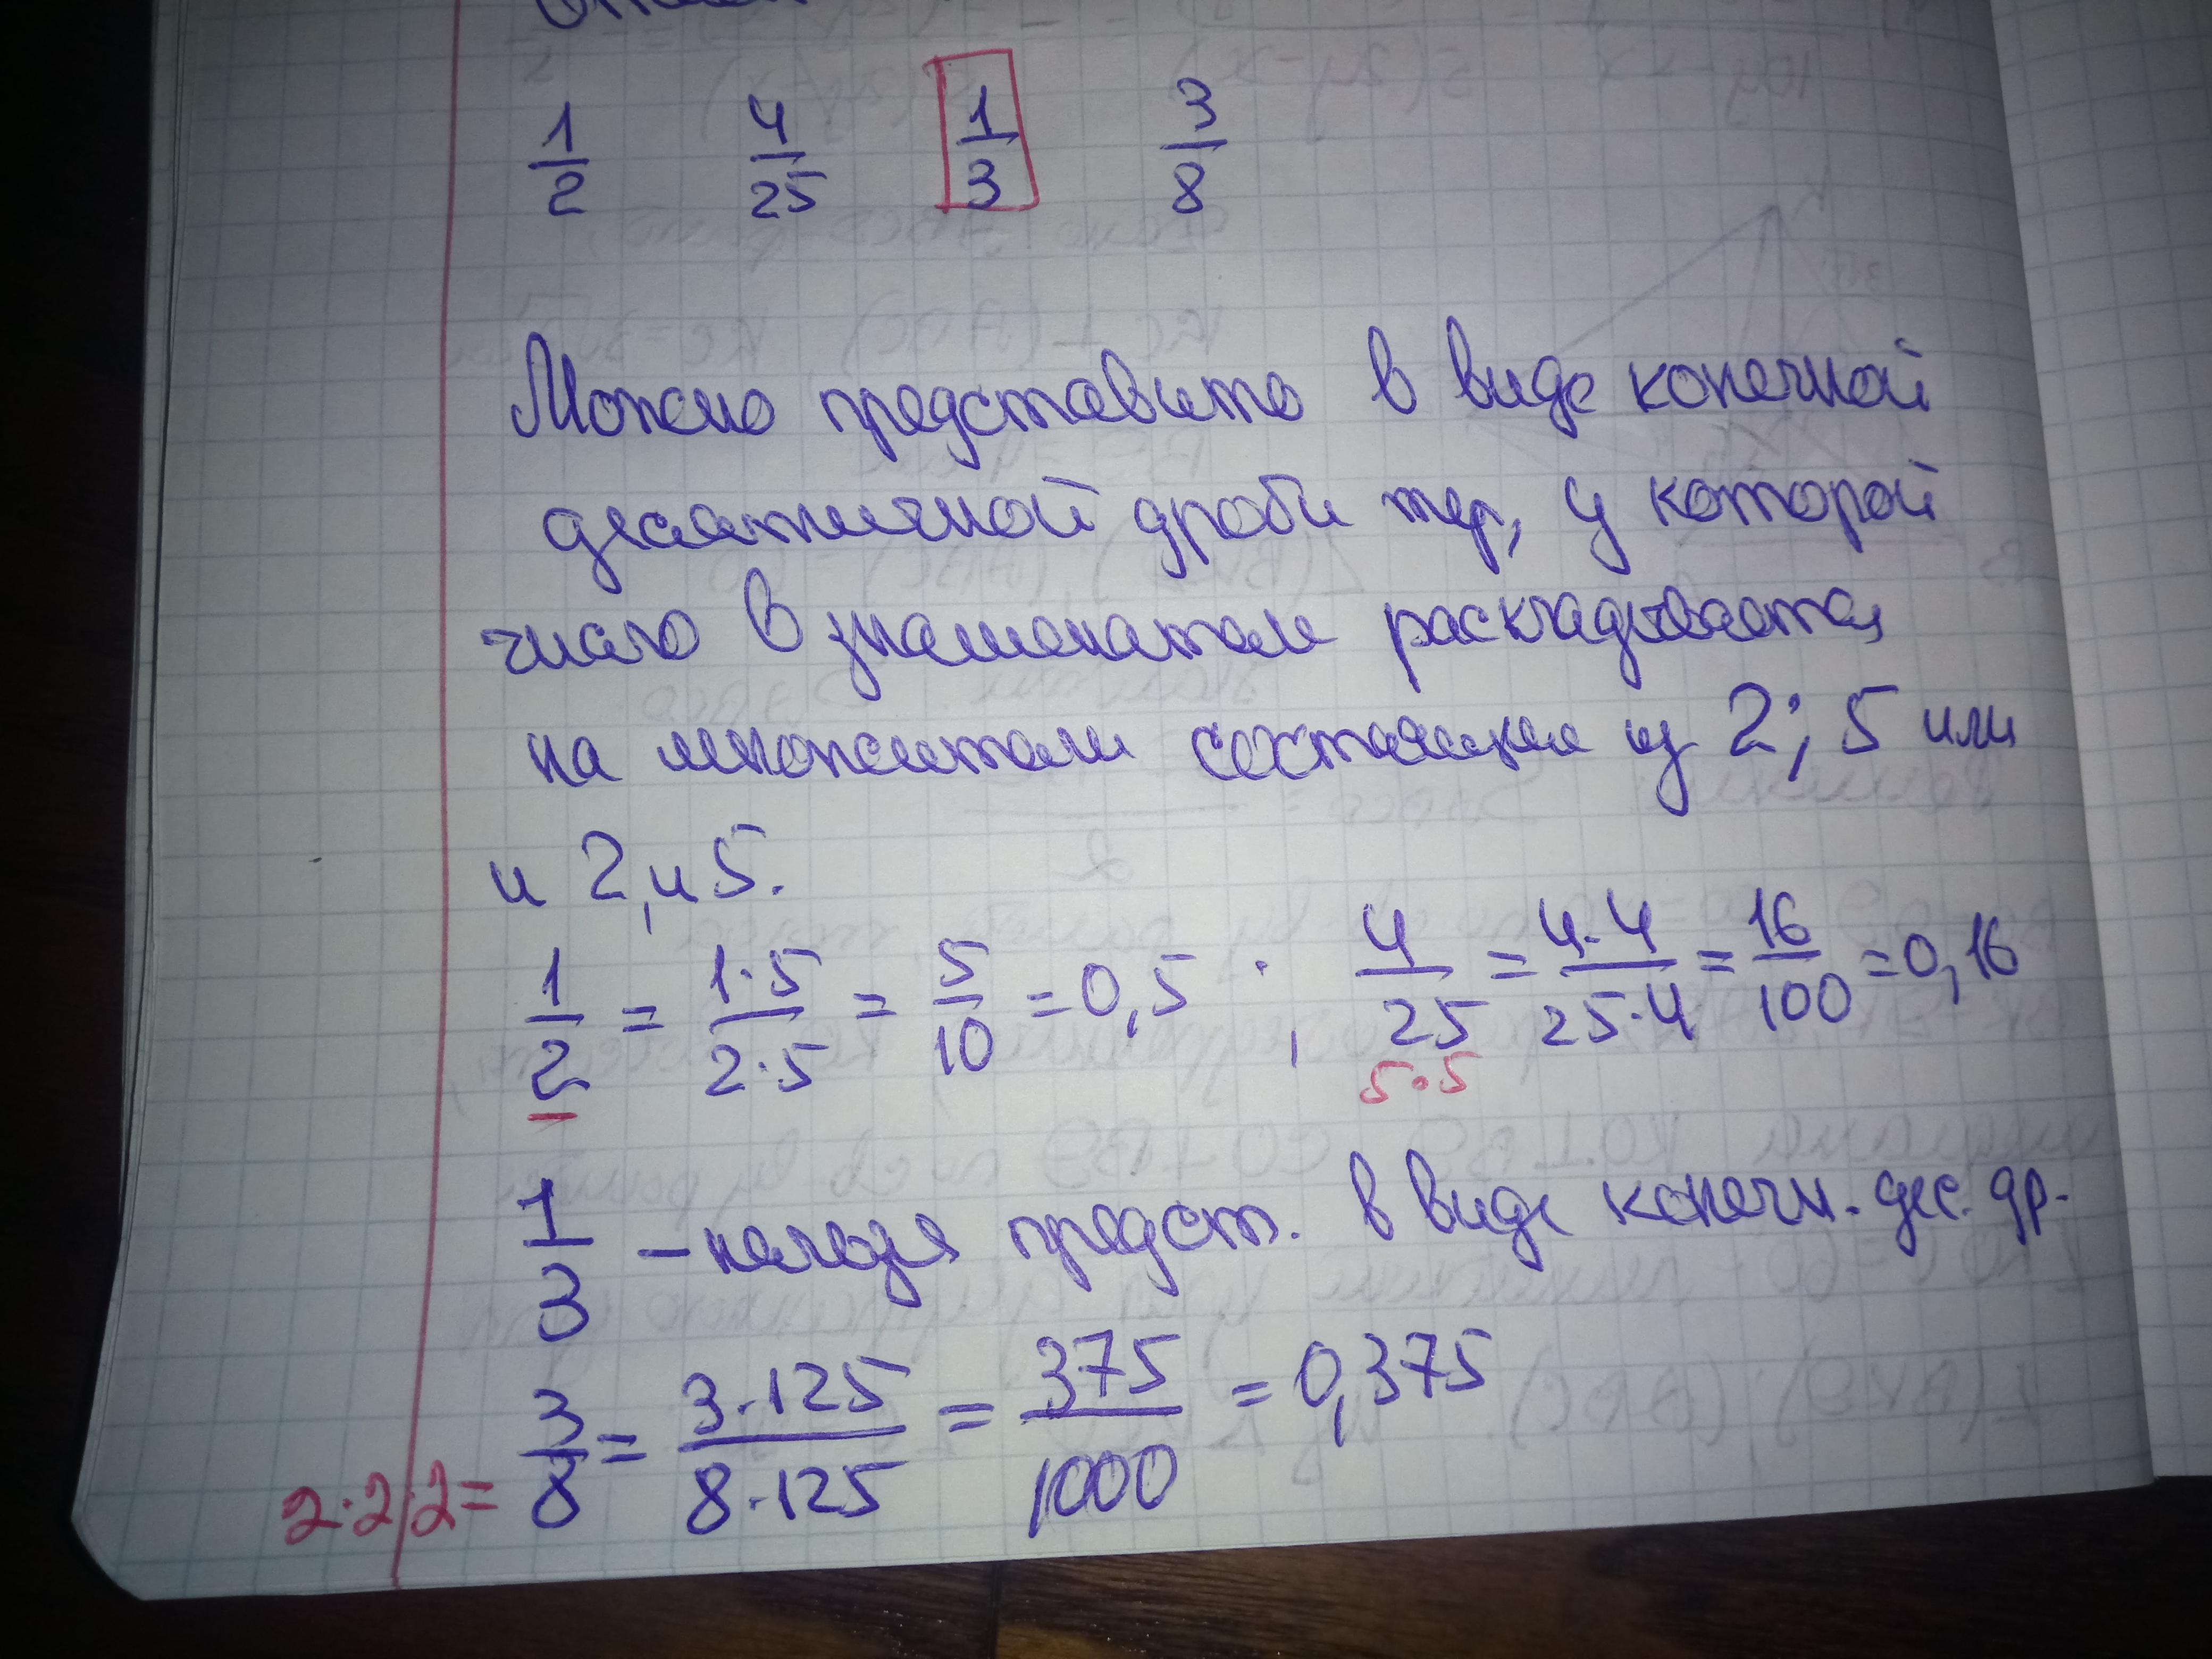 1/2 4/25 1/3 3/8
Можно представить в виде конечной
десятичной дроби ту, у которой
число в знаменателе раскладывается
на множители состоящие из 2; 5 или
и 2, и 5.
1/2 = 1·5/2·5 = 5/10 = 0,5 ; 4/25 = 4·4/25·4 = 16/100 = 0,16
5·5
1/3 – нельзя предст. в виде конечн. дес. др.
2·2·2= 3/8 = 3·125/8·125 = 375/1000 = 0,375